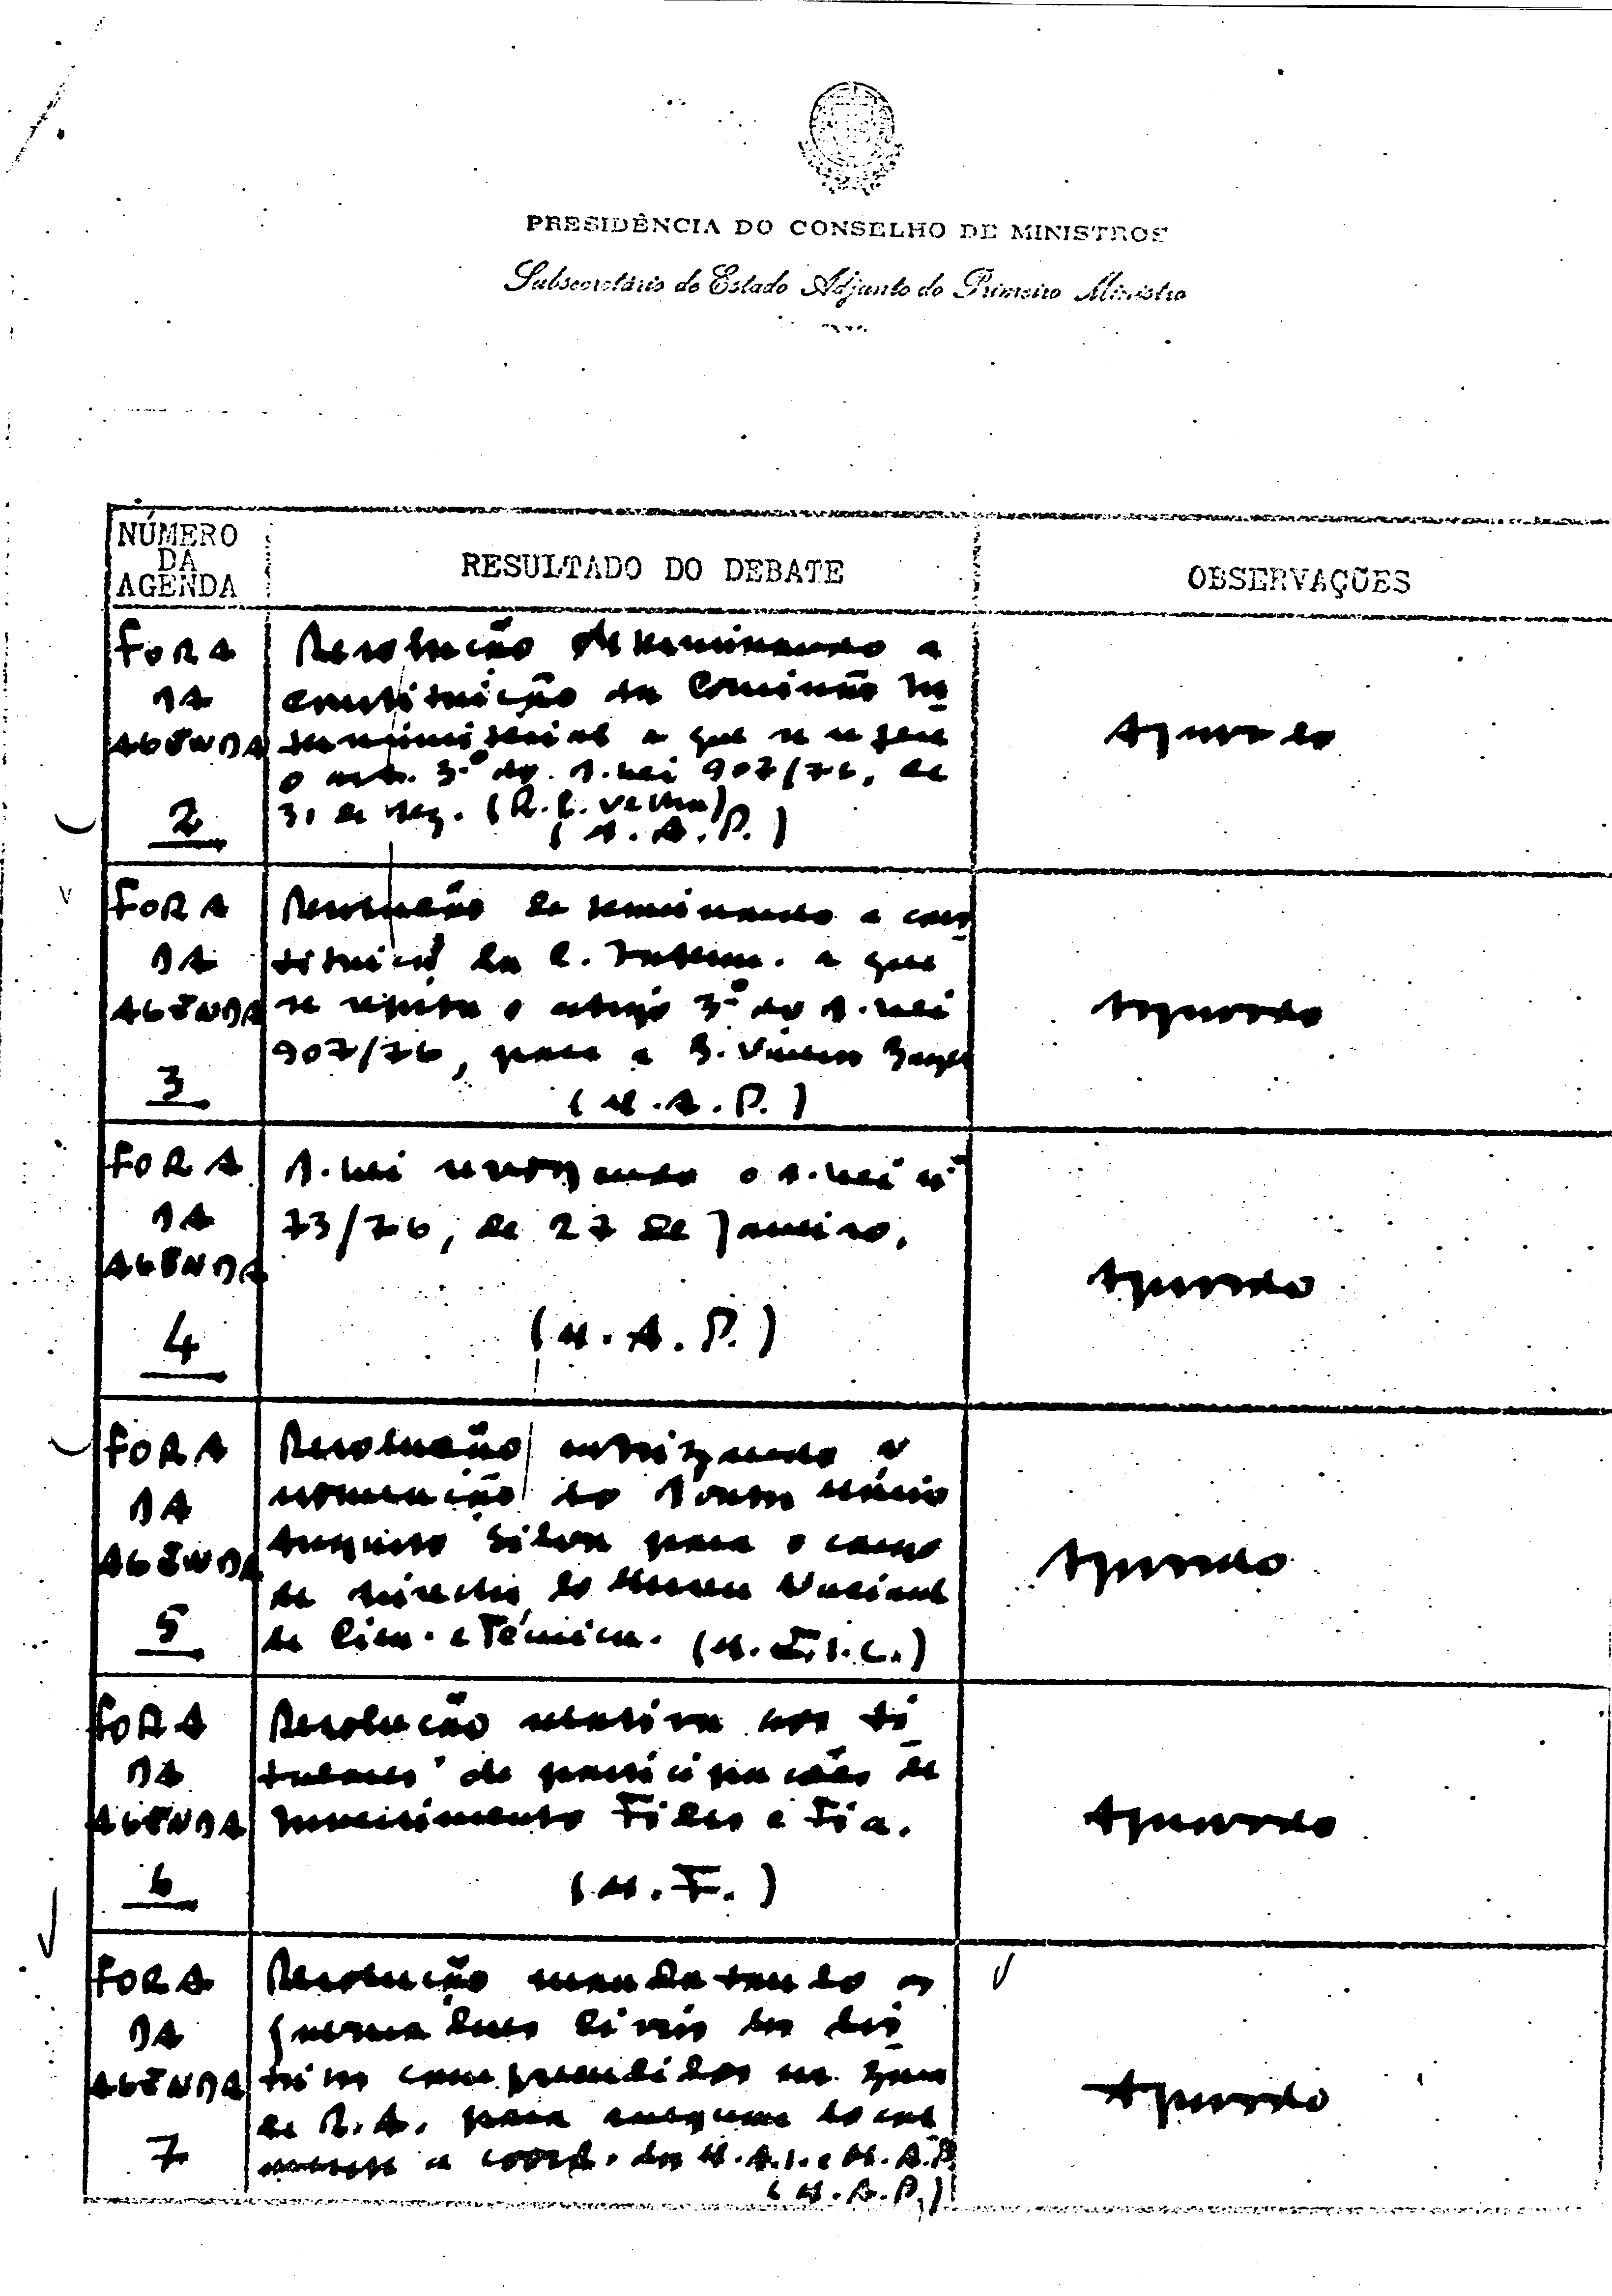 PRESIDÊNCIA DO CONSELHO DE MINISTROS
Subsecretário de Estado Adjunto do Primeiro Ministro
NÚMERO
DA
AGENDA
RESULTADO DO DEBATE
OBSERVAÇÕES
FORA
DA
AGENDA
2
Resolução determinando a
constituição da Comissão In
terministerial a que se refere
o art. 3.º do D. Lei 907/76, de
31 de Dez. (R. C. Vecha)
(M. A. P.)
Aprovado
FORA
DA
AGENDA
3
Resolução determinando a cons
tituição da C. Interm. a que
se refere o artigo 3.º do D. Lei
907/76, para a S. Vicen
(M. A. P.)
Aprovado
FORA
DA
AGENDA
4
D. Lei revogando o D. Lei nº
73/76, de 27 de Janeiro.
(M. A. P.)
Aprovado
FORA
DA
AGENDA
5
Resolução autorizando a
nomeação do Doutor
Silva para o cargo
de director do Museu Nacional
de Cien. e Técnica. (M. E. I. C.)
Aprovado
FORA
DA
AGENDA
6
Resolução relativa aos ti
tulares de participações de
Investimento Fides e Fia.
(M. F.)
Aprovado
FORA
DA
AGENDA
7
Resolução mandatando os
Governadores Civis dos dis
tritos compreendidos na Zona
de R. A. para
a coord. dos M. A. I. e M. A. P.
(M. A. P.)
Aprovado